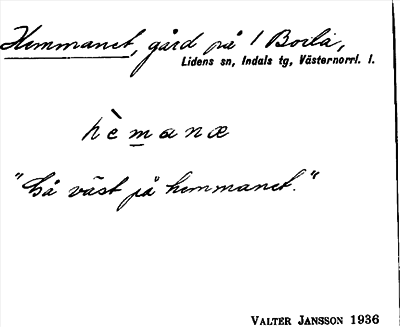 Hemmanet, gård på 1 Boila,
Lidens sn, Indals tg, Västernorrl. l.
hèmanæ
"Gå väst på hemmanet."
VALTER JANSSON 1936